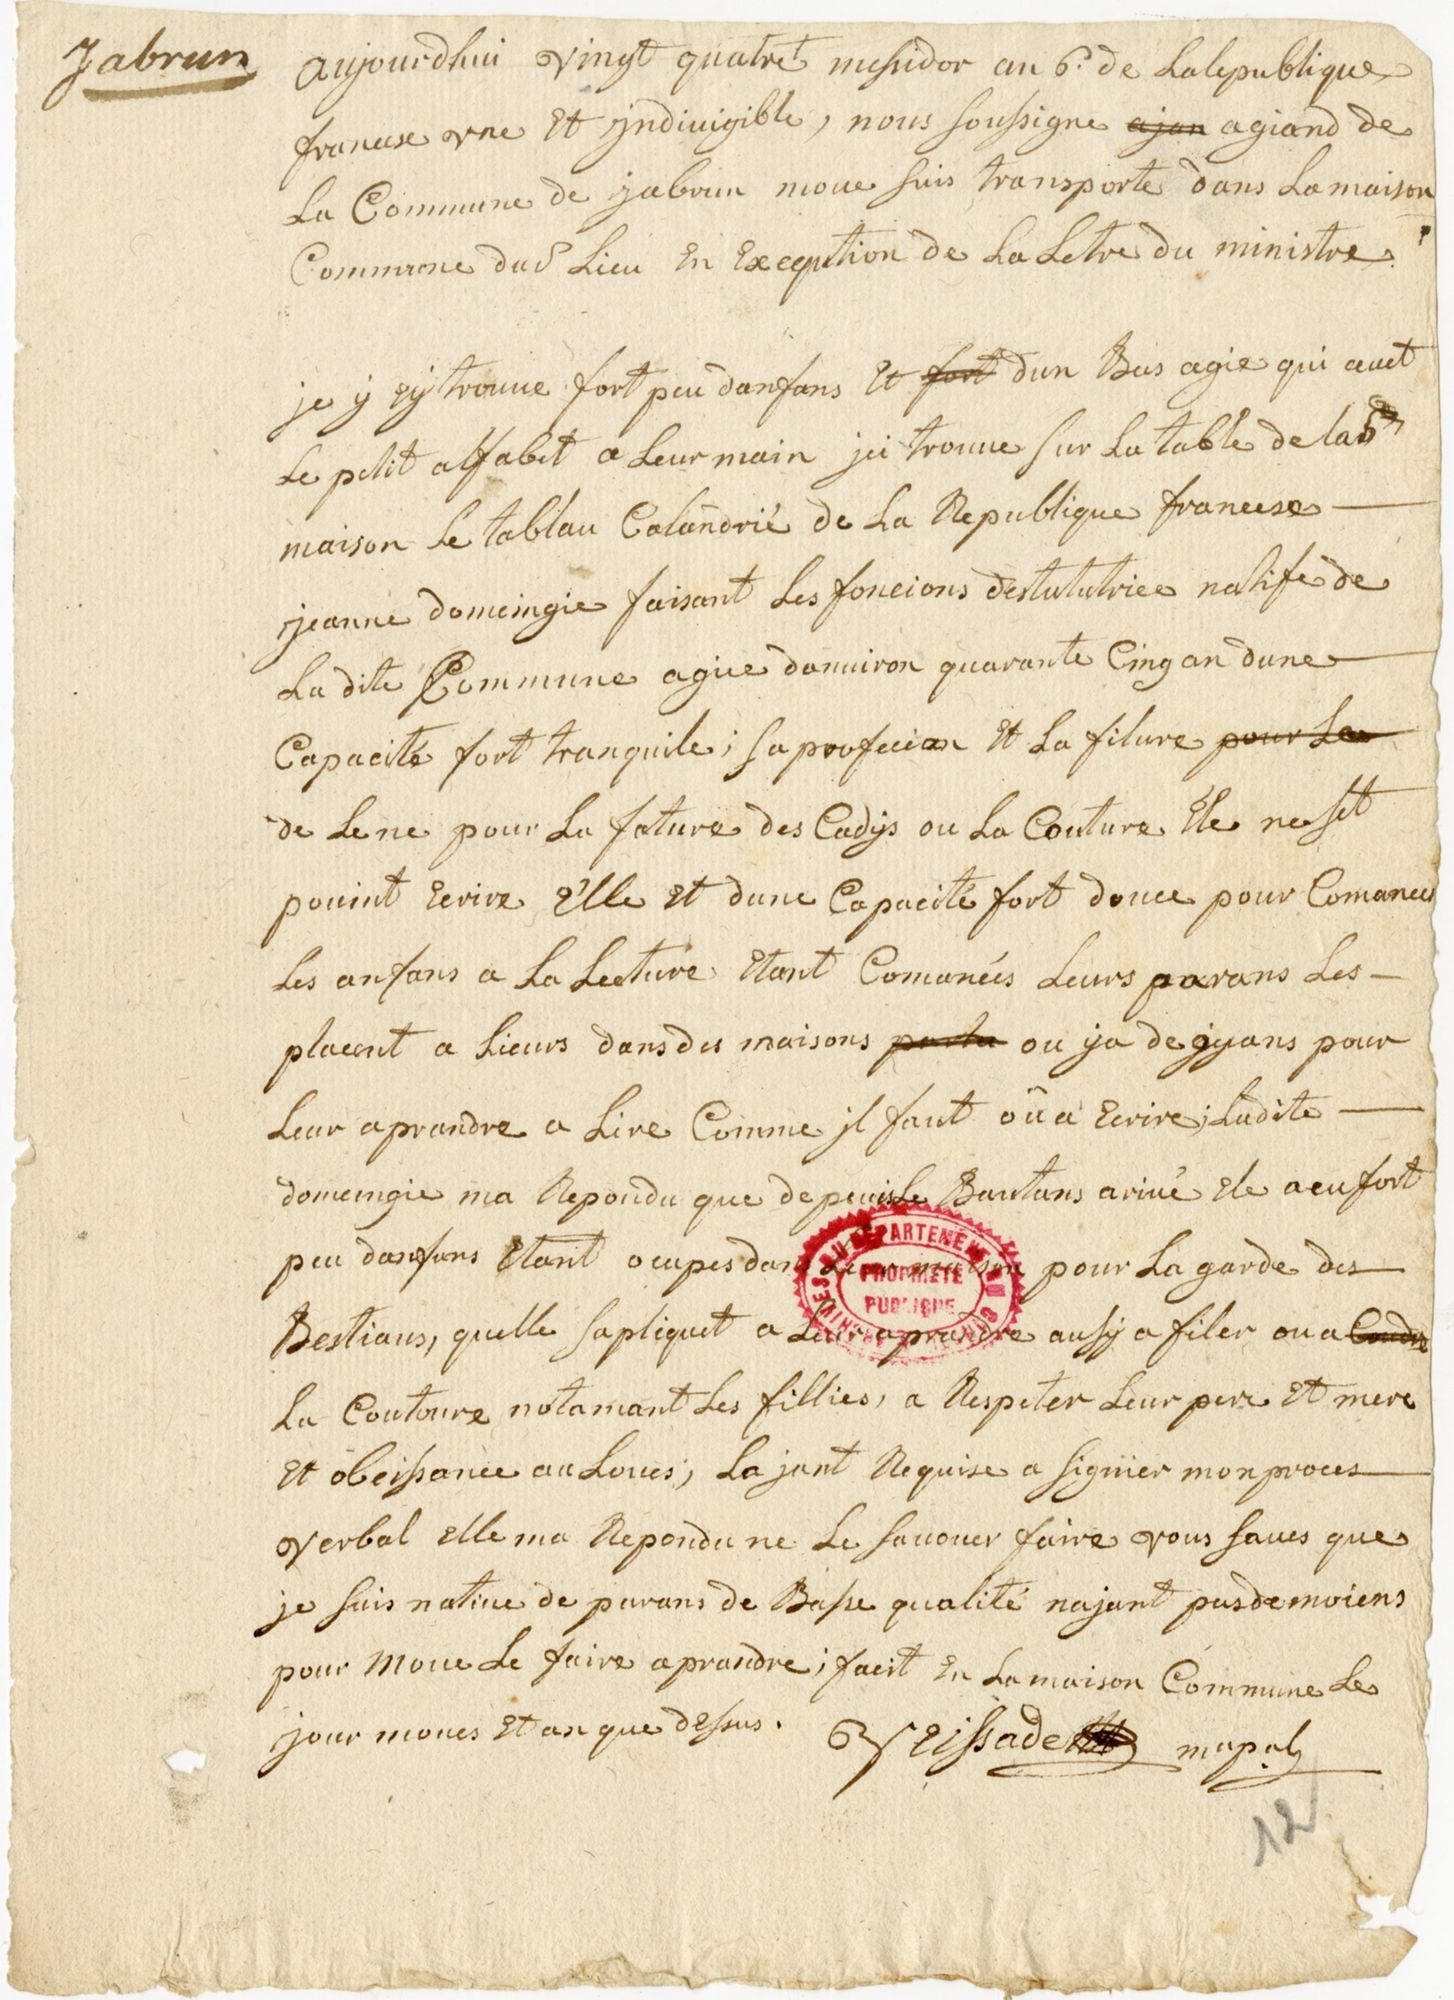 Jabrun
aujourdhui vingt quatre messidor an 6.e de La Republique
francese vne Et jndiuigible, nous soussigne ajan agiand de
La Commune de jabrun moue suis transporte dans La maison
Commune dud Lieu En Execqution de La Letre du ministre.
je y Ey trouue fort peu danfans Et fort dun Bas agie qui auet
Le petit alfabet a Leur main jei trouue sur La table de lad
maison Le tablau Calandrié de La Republique francese
jeanne domeingie faisant Les foncions destututrice natife de
La dite Commune agiee danuiron quarante Cinq an dune
Capacité fort tranquile; sa profecion Et La filure pour La
de Lene pour La fature des Cadijs ou La Couture Ele ne set
pouint Ecrire Elle Et dune Capacité fort douce pour Comancer
Les anfans a La Lecture Etant Comancés Leurs parans Les
placent a Lieurs dans des maisons ou ya de gyans pour
Leur aprandre a Lire Comme jl faut ou a Ecrire; Ladite
domeingie ma Repondu que depeuis Le Bautans ariué Ele a eu fort
peu danfans Etant ocupes dans Leur maison pour La garde des
Bestiaus, quelle sapliquet a Leur aprandre ausy a filer ou a Coudre
La Coutoure notamant Les fillies, a Respeter Leur pere Et mere
Et obeissance au Loues; Lajant Requise a signier mon proces
verbal Elle ma Repondu ne Le sauouer faire vous saues que
je suis natiue de parans de Basse qualité najant pas de moiens
pour moue Le faire aprandre; faeit En La maison Commune Le
jour moues Et an que dessus. Veissade mapal
ARCHIVES DU DEPARTEMENT DU CANTAL
PROPRIETE
PUBLIQUE
12